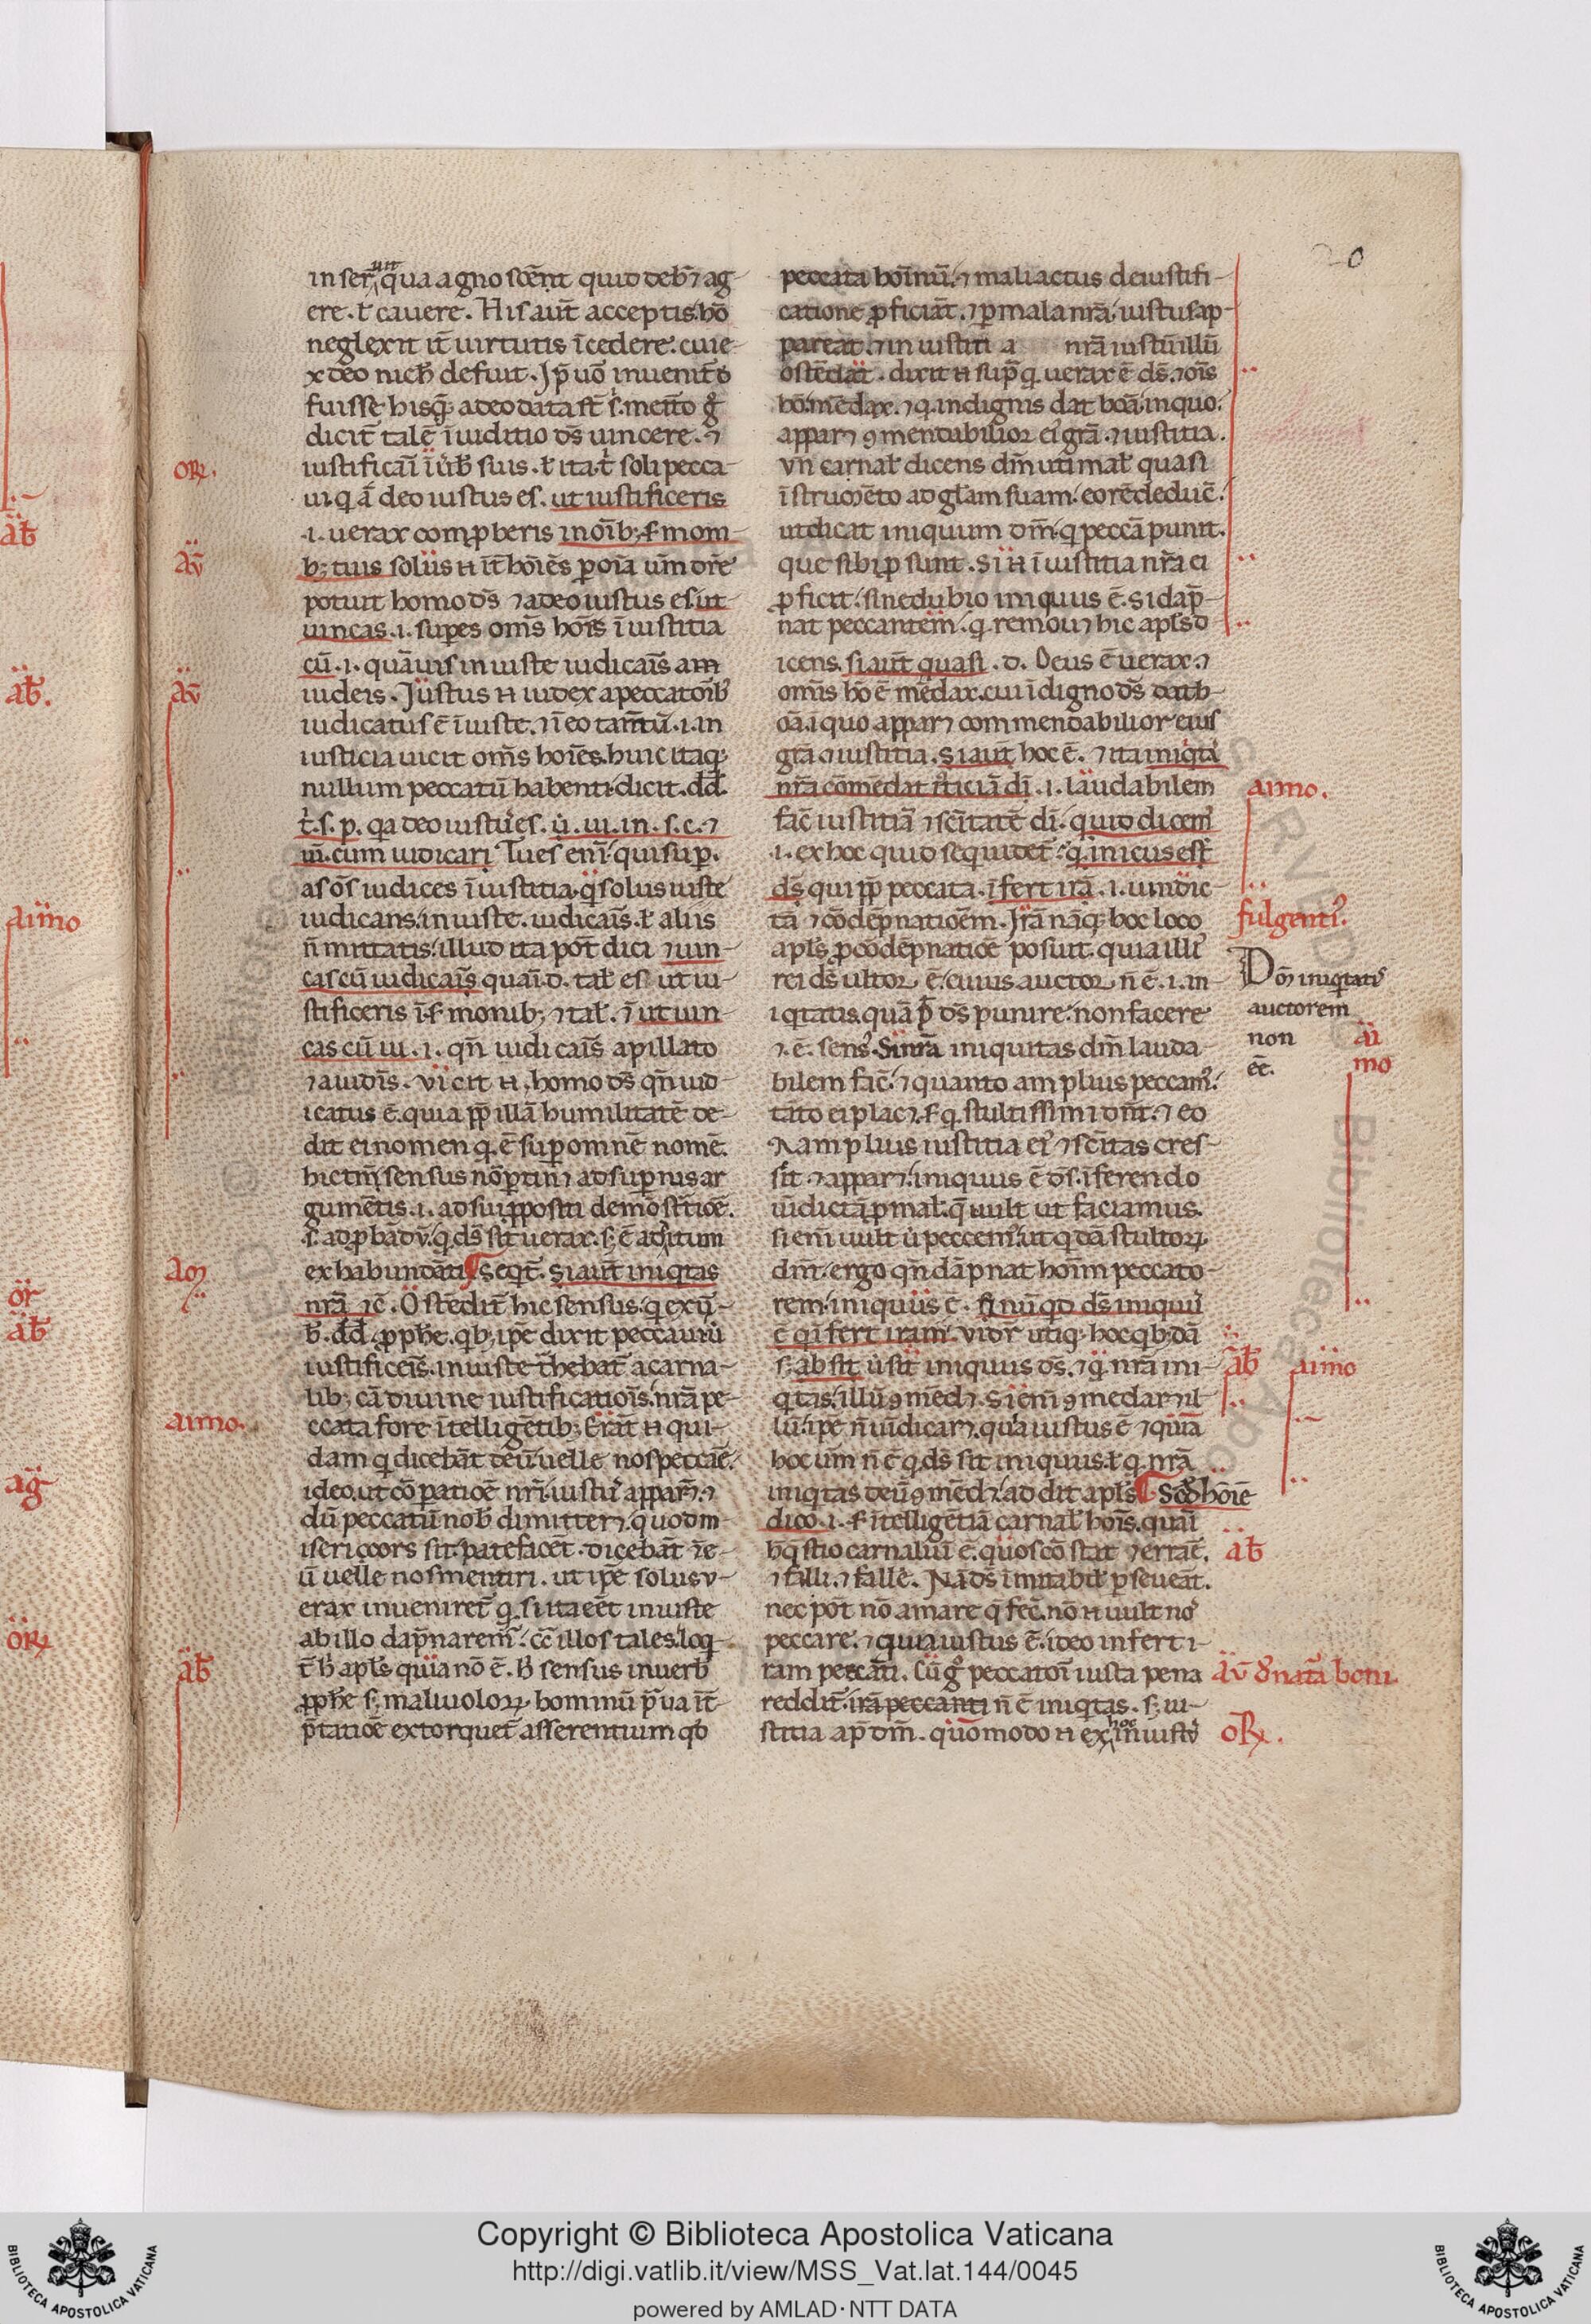 in ser̄ q̄ua agnoscēnt quid deb̄ ⁊ ag-
ere. ł cauere. His aut̄ acceptis hō
neglexit it̄ uirtutis īcedere. cui e-
x deo nich̄ defuit.
fuisse hisq̄ adeo data st̄ s. merito g̊
dicit̄ talē ī iuditio d̄s uincere. ⁊
iustificāī ī ūrb̄ suis. ł ita. t̄ soli pecca-
ui. q̄ ā deo iustus es. ut iustificeris
.i. uerax comp̱beris in oīb; s̄monı-
b; tuis solus
potuit homo d̄s ⁊ adeo iustus es. ut
uincas .i. sup̱es om̄s hoīs ī iustitia
cū .i. quāuis iniuste iudicaīs a
iudeis. Justus n̄ iudex a peccatorib̄
iudicatus ē īiuste. ⁊ ī eo tam̄tū .i. in
iusticia uicit om̄s hoīes. huic itaq;
nullum peccatū habenti dicit. dd̄.
t̄. s. p. q̄a deo iustus es. ū. iu. in. s. c. ⁊
ui. cum iudicari Tu es enī qui sup̱.
as oīs iudices ī iustitia. q̄ solus iuste
iudicans. iniuste. iudicaīs. ł aliis
n̄ mittatis. illud ita pōt dici ⁊ uin-
cas cū iudicaīs quaī. d. tal̄ es ut iu-
stificeris ī s̄monib; ⁊ tal̄. ⁊ ut uin-
cas cū iu. .i. qn̄ iudicaīs a pillato
⁊ a iudīs. Vicit n̄. homo d̄s qn̄ iud-
icatus ē. quia pp̄ illā humilitatē de-
dit ei nomen q. ē sup̱ omne nomē.
hic tm̄ sensus nō p̱tin⁊ ad sup̱ius ar
gumētis .i. ad sui p̱positi demōstrōē.
s. ad p̱bādū. q. d̄s sit uerax. s; ē aditum
ex habundāti ¶ Seqt̄. Si aut̄ iniq̄tas
nr̄a ⁊c̄. Ostēdit̄ hic sensus. q. ex ū-
b̄. dd̄. p̱ph̄e. q̄b; ip̄e dixit peccaui ū
iustificeīs. iniuste t̄hebat̄ a carna-
lib; cā diuine iustificatioīs. nr̄a pe-
ccata fore ītelligētib; Erāt n̄ qui-
dam q̄ dicebāt deū uelle nos peccāe.
ideo. ut cō p̱atiōē nr̄i iustus appar̄ ⁊
dū peccatū nob̄ dimitter⁊. quod m-
isericors sit. patefacet̄. dicebāt ⁊ d̄e-
ū uelle nos mentiri. ut ip̄e solus v-
erax inueniret̄ q. si ita eēt iniuste
ab illo dap̄naremʼ. cc̄ illos tales. loq̄-
t̄ h̄ apl̄s quia nō ē. H̄ sensus in uerb̄
p̱ph̄e s; maliuolo℞. hominū p̄ua it̄-
p̄tatiōē extorquet̄ asserentium qd̄
peccata hoīnū. ⁊ mali actus dei iustifi-
catione p̱ficiāt. ⁊ p̱ mala nr̄a iustus ap-
pareat. ⁊ iniustiti a nr̄a iustū illū
ostēdat. dixit n̄ sup̄ q. uerax ē d̄s. ⁊ oīs
hō mēdax. ⁊ q. indignis dat bōā. in quo.
appar⁊ ꝯmendabilior eiʼ grā. ⁊ iustitia.
vn̄ carnal̄ dicens dm̄ uti mal̄ quasi
īstrum̄ēto ad gl̄am suam. eo rē deduc̄.
ut dicat iniquum dm̄ q̄ peccā punit.
que sibi p̱sunt. Si n̄ ī iustitia nr̄a ei
p̱ficit. sine dubio iniquus ē. si dap̄-
nat peccantem. q. remou⁊ hic apl̄s d-
icens. si aut̄ quasi. d. Deus ē uerax. ⁊
omīs hō ē mēdax. cui īdigno d̄s dat b-
oā. ī quo appar⁊ commendabilior eius
grā ⁊ iustitia. Si aut̄ hoc ē. ⁊ ita iniq̄ta
nr̄a cōmēdat iʼticiā dī .i. laudabilem
fac̄ iustitiā ⁊ sc̄itatē dī. quid dicemʼ
.i. ex hoc quid seq̄ uidet̄. q. inicus est
d̄s qui pp̄ peccata. īfert irā .i. uindic-
tā ⁊ cōdēpnatiōēm. Jrā nāq; hoc loco
apl̄s p̱ cōdēpnatiōē posuit. quia illiʼ
rei d̄s ultor ē. cuius auctor n̄ ē .i. in-
iq̄tatis. quā p̄ d̄s punire. non facere
⁊. ē. sensʼ. Si nr̄a iniquitas dm̄ lauda-
bilem fac̄. ⁊ quanto amplius peccamʼ.
tāto ei plac⁊. s̄ q. stultissimi dn̄t. ⁊ eo
amplius iustitia eiʼ ⁊ sc̄itas cres-
sit. ⁊ appar⁊. iniquus ē d̄s. īferendo
uīdictā p̱ mal̄. q̄ uult ut faciamus.
si enī uult ū peccemʼ. ut q̄dā stulto℞
dn̄t. ergo qn̄ dāpnat homīn peccato-
rem. iniquus ē. sı nūqd̄ d̄s iniquuʼ
ē q̄ īfert iram. Vidr̄ utiq; hoc q̄b;dā
s; absit ū sit iniquus d̄s. ⁊ q. nr̄a ini-
q̄tas. illū ꝯmēd⁊. Si enī ꝯmēdar⁊ il-
lū. ip̄e n̄ uīdicar⁊. quia iustus ē ⁊ quia
hoc uīn n̄ ē q. d̄s sit iniquus. ł q. nr̄a
iniq̄tas deū ꝯmēd⁊. addit apl̄s ¶ Scd̄ hoīē
dico .i. s̄ ītelligētiā carnal̄ hoīs. quaī
h̄ q̄stio carnaliū ē. quos cōstat ⁊ errāē.
⁊ falli. ⁊ falle. Nā d̄s īmutabil̄ p̱seueāt.
nec pōt nō amare q̄ fec̄. nō n̄ uult nos
peccare. ⁊ quia iustus ē. ideo infert i-
ram peccāti. Cū g̊ peccatori iusta pena
reddit̄. irā peccanti n̄ ē iniq̄tas. s; iu-
stitia ap̄ dm̄. quomodo n̄ ex hoc īniustʼ
oR̄.
av̄
av̄
aɱ
aimo.
ab̄
aimo.
fulgentiʼ.
Dōm iniq̄tatiʼ
auctorem
non
eē.
ai
mo
ab̄
aimo
ab̄
av̄ natā boni
oR̄.
20
ab̄
ab̄.
aimo
or̄
ab̄
ag̊
oR̄
Copyright © Biblioteca Apostolica Vaticana
http://digi.vatlib.it/view/MSS_Vat.lat.144/0045
powered by AMLAD·NTT DATA
BIBLIOTECA APOSTOLICA VATICANA
BIBLIOTECA APOSTOLICA VATICANA